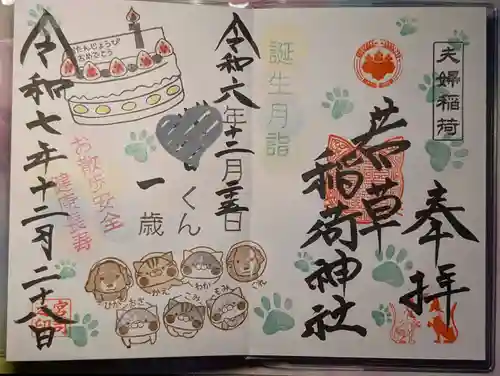 夫婦稲荷
奉拝
若草
稲荷神社
誕生月詣
令和六年十二月
日
くん
一歳
おたんじょうび
おめでとう
お散歩安全
健康長寿
令和七年十二月二十八日
かえ
わか
もみ